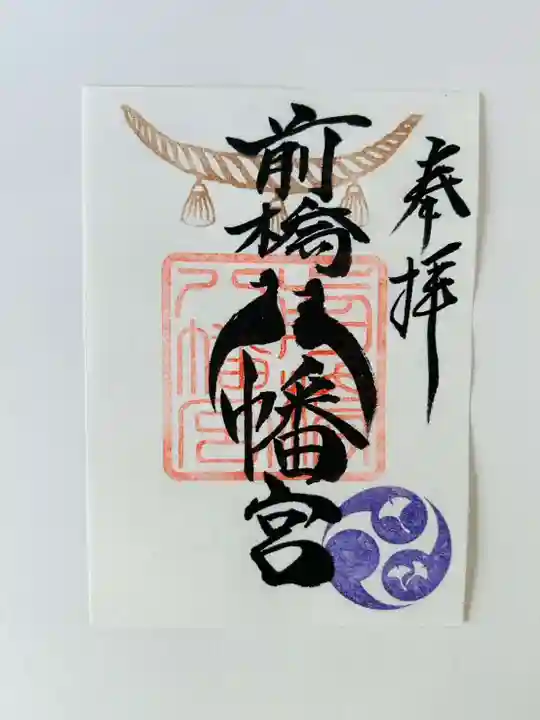 奉拝
前橋八幡宮